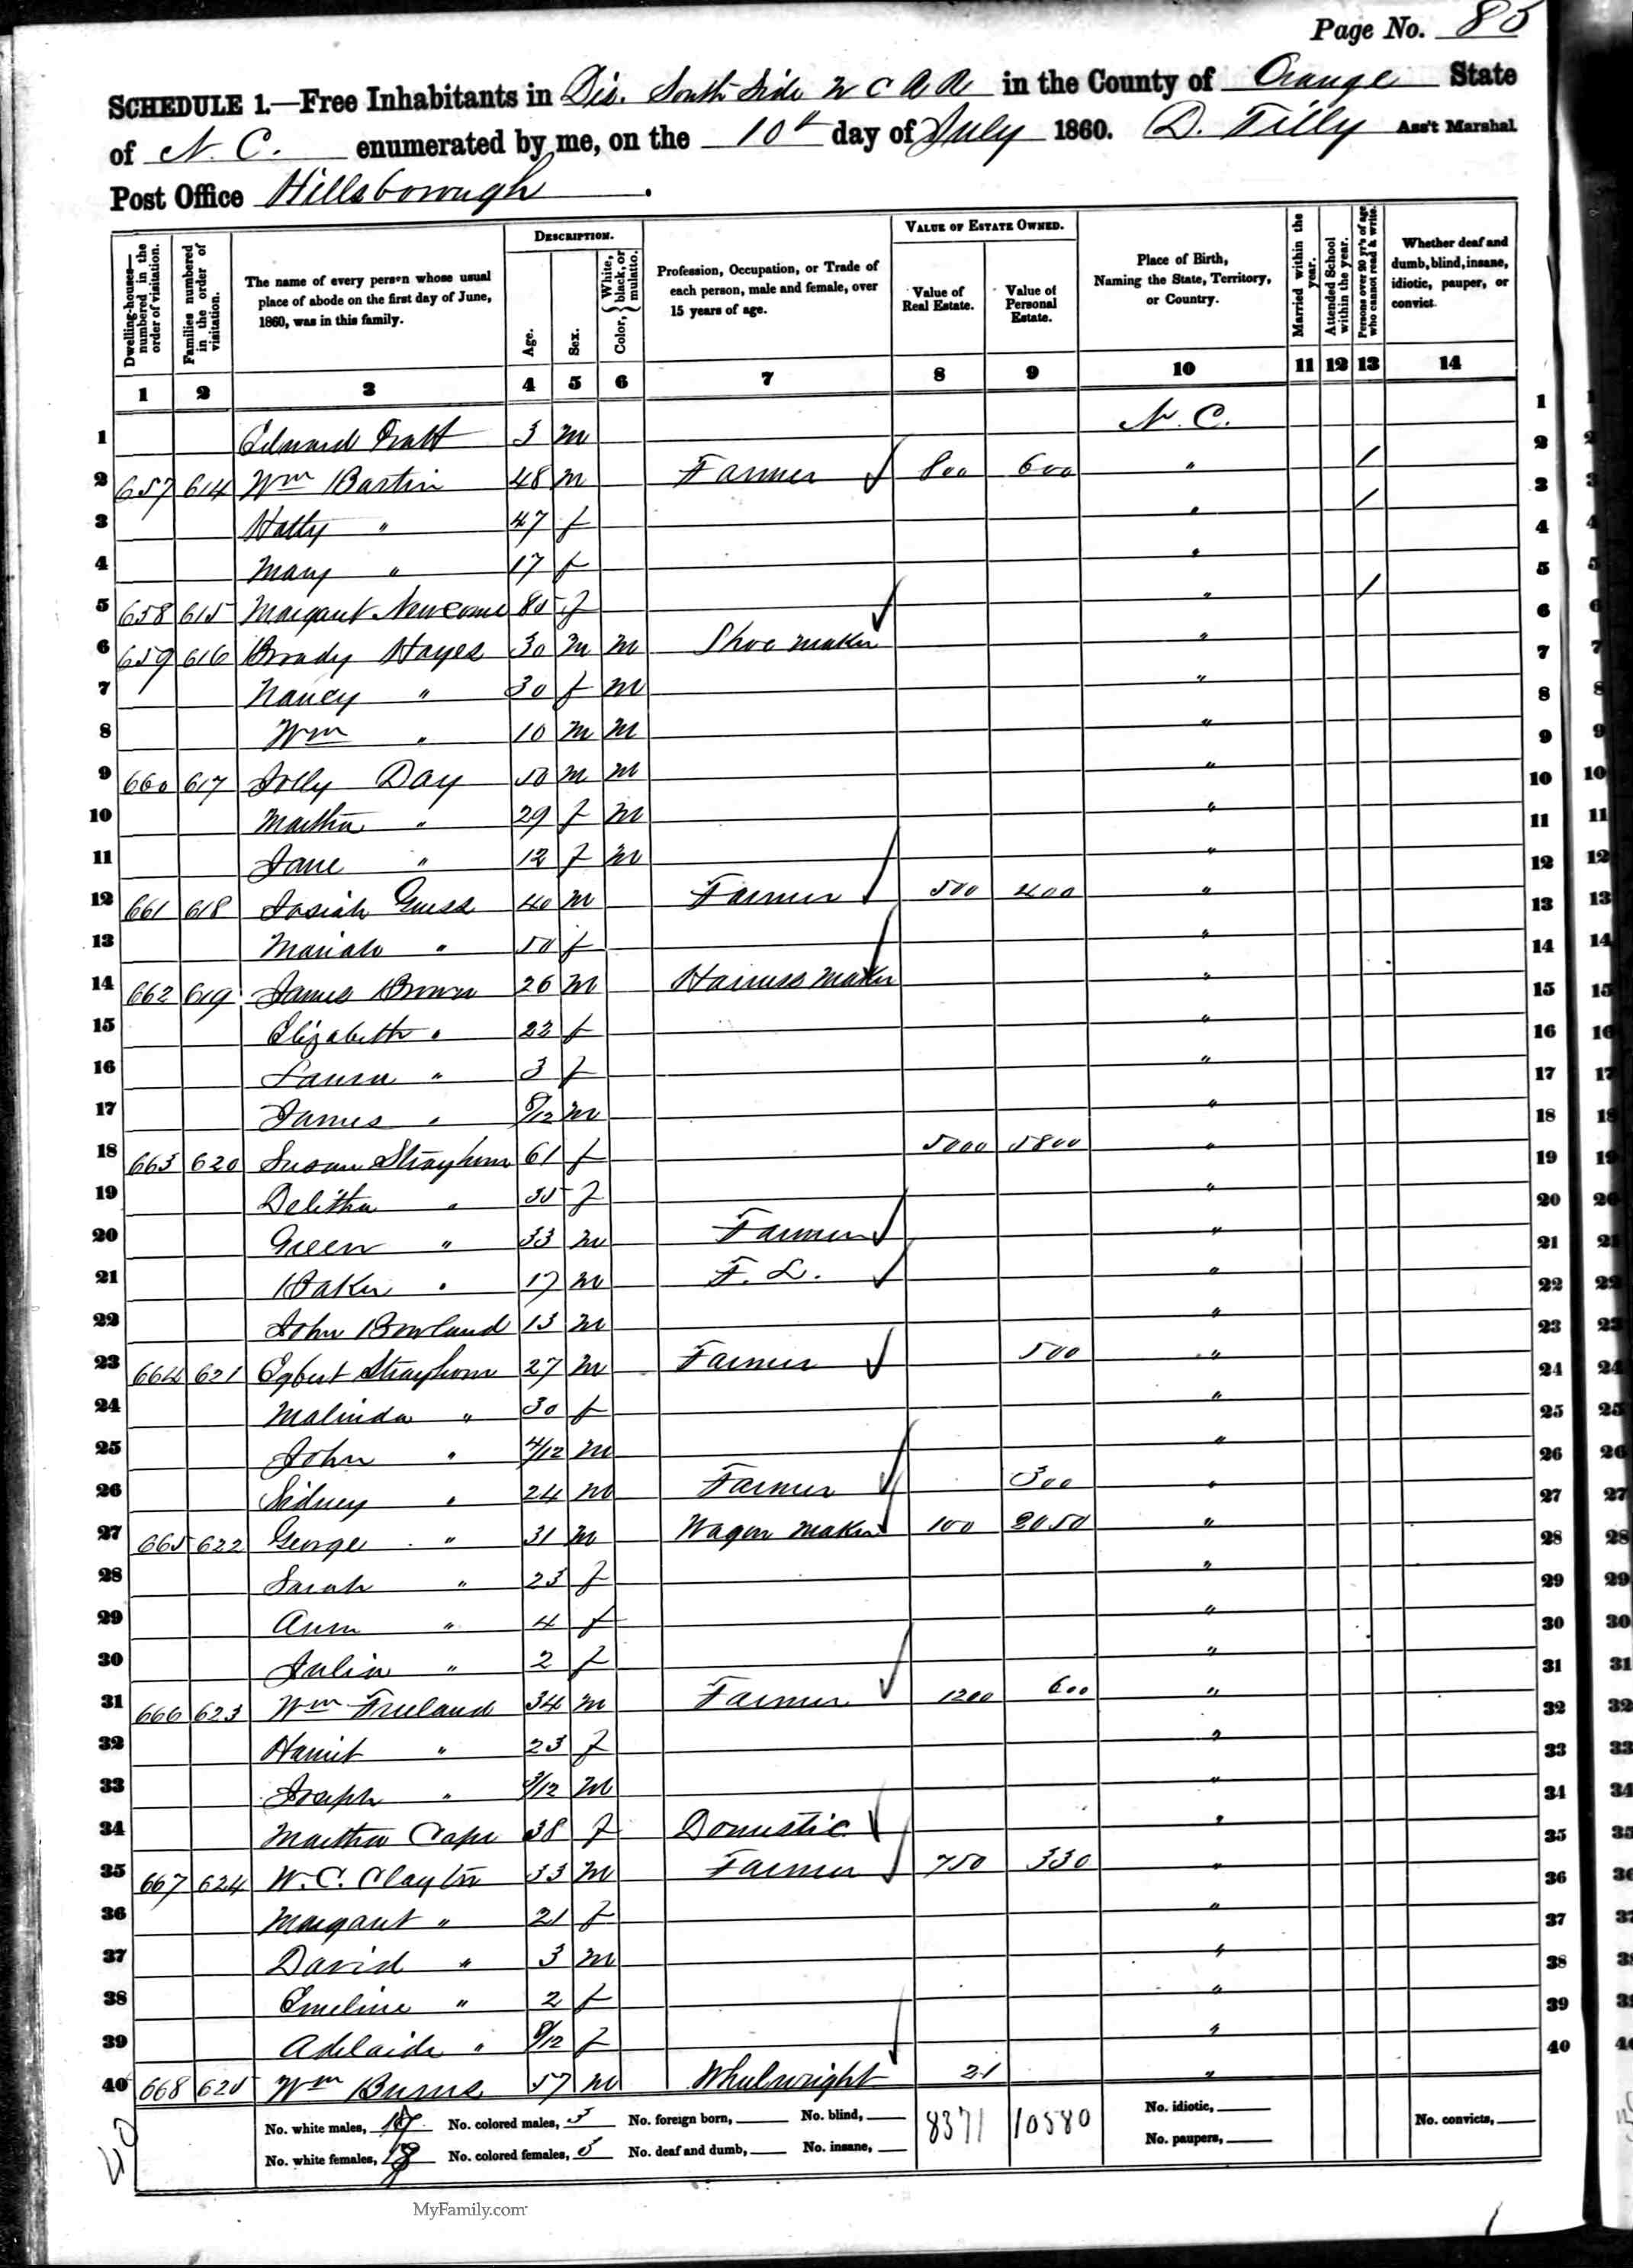 Page No. 85
SCHEDULE 1.—Free Inhabitants in Dis. South Side N C R R in the County of Orange State
of N. C. enumerated by me, on the 10th day of July 1860. D. Tilly Ass't Marshal
Post Office Hillsborough.
Dwelling-houses—numbered in the order of visitation.
Families numbered in the order of visitation.
The name of every person whose usual place of abode on the first day of June, 1860, was in this family.
DESCRIPTION.
Age.
Sex.
Color, { White, black, or mulatto.
Profession, Occupation, or Trade of each person, male and female, over 15 years of age.
VALUE OF ESTATE OWNED.
Value of Real Estate.
Value of Personal Estate.
Place of Birth, Naming the State, Territory, or Country.
Married within the year.
Attended School within the year.
Persons over 20 yr's of age who cannot read & write.
Whether deaf and dumb, blind, insane, idiotic, pauper, or convict.
1 2 3 4 5 6 7 8 9 10 11 12 13 14
1 Edward Pratt 3 m N. C. 1
2 657 614 Wm Bartin 48 m Farmer 800 600 " / 2
3 Hatty " 47 f " / 3
4 Mary " 17 f " 4
5 658 615 Margaret Newcome 85 f " / 5
6 659 616 Brady Hayes 30 m m Shoe maker " 6
7 Nancy " 30 f m " 7
8 Wm " 10 m m " 8
9 660 617 Jolly Day 50 m m " 9
10 Martha " 29 f m " 10
11 Jane " 12 f m " 11
12 661 618 Josiah Guess 40 m Farmer 500 400 " 12
13 Mariah " 50 f " 13
14 662 619 James Brown 26 m Harness maker " 14
15 Elizabeth " 22 f " 15
16 Laura " 3 f " 16
17 James " 8/12 m " 17
18 663 620 Susan Strayhorn 61 f 5000 5800 " 18
19 Delitha " 35 f " 19
20 Green " 33 m Farmer " 20
21 Baker " 17 m F. L. " 21
22 John Borland 13 m " 22
23 664 621 Egbert Strayhorn 27 m Farmer 500 " 23
24 Malinda " 30 f " 24
25 John " 4/12 m " 25
26 Sidney " 24 m Farmer 300 " 26
27 665 622 George " 31 m Wagon maker 100 2050 " 27
28 Sarah " 23 f " 28
29 Ann " 4 f " 29
30 Julia " 2 f " 30
31 666 623 Wm Freeland 34 m Farmer 1200 600 " 31
32 Harriet " 23 f " 32
33 Joseph " 3/12 m " 33
34 Martha Cape 38 f Domestic " 34
35 667 624 W. C. Clayton 33 m Farmer 750 330 " 35
36 Margaret " 21 f " 36
37 David " 3 m " 37
38 Emeline " 2 f " 38
39 Adelaide " 8/12 f " 39
40 668 625 Wm Burns 57 m Wheelwright 21 " 40
No. white males, No. colored males, 3 No. foreign born, No. blind, 8371 10580 No. idiotic, No. convicts,
No. white females, No. colored females, No. deaf and dumb, No. insane, No. paupers,
40
MyFamily.com